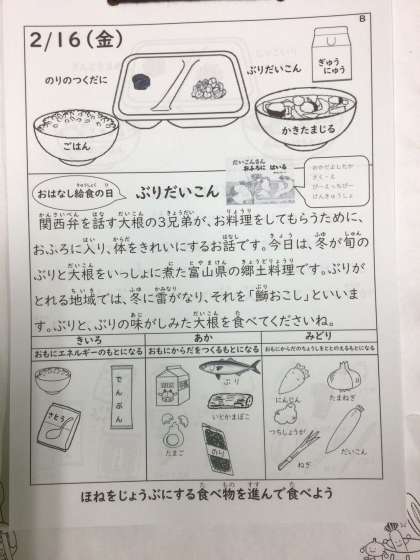 B
2/16(金)
のりのつくだに
ぶりだいこん
ぎゅう
にゅう
ごはん
かきたまじる
おはなし給食の日
ぶりだいこん
だいこんさん
おふろに はいる
関西弁を話す大根の3兄弟が、お料理をしてもらうために、
おふろに入り、体をきれいにするお話です。今日は、冬が旬の
ぶりと大根をいっしょに煮た富山県の郷土料理です。ぶりが
とれる地域では、冬に雷がなり、それを「鰤おこし」といいま
す。ぶりと、ぶりの味がしみた大根を食べてくださいね。
きいろ
あか
みどり
おもにエネルギーのもとになる
おもにからだをつくるもとになる
おもにからだのちょうしをととのえるもとになる
さとう
でんぷん
ぶり
いとかまぼこ
たまご
のり
にんじん
たまねぎ
つちしょうが
ねぎ
だいこん
ほねをじょうぶにする食べ物を進んで食べよう